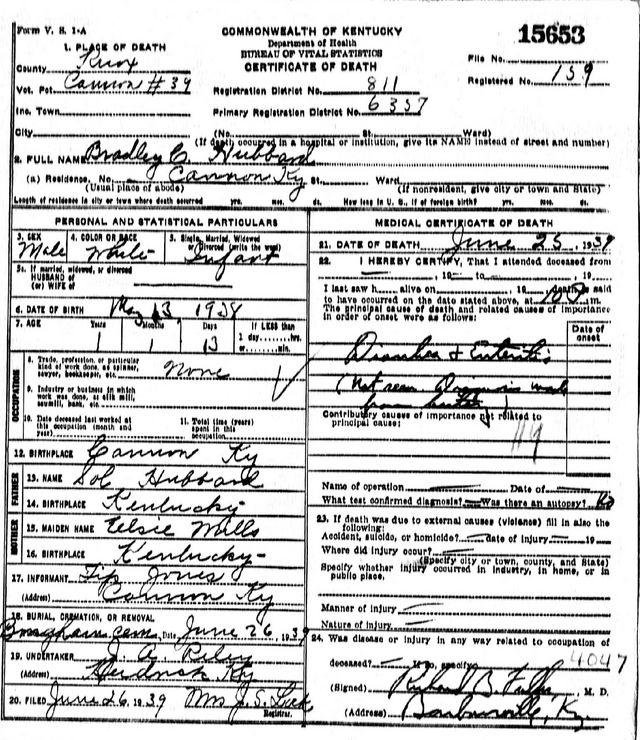 Form V. S. 1-A
COMMONWEALTH OF KENTUCKY
Department of Health
BUREAU OF VITAL STATISTICS
CERTIFICATE OF DEATH
15653
1. PLACE OF DEATH
County Knox
File No.
Registered No. 159
Vot. Pct. Cannon #39
Registration District No. 811
Inc. Town
Primary Registration District No. 6357
City (No. St. Ward)
(If death occurred in a hospital or institution, give its NAME instead of street and number)
2. FULL NAME Bradley C. Hubbard
(a) Residence, No. Cannon Ky St. Ward
(Usual place of abode) (If nonresident, give city or town and State)
Length of residence in city or town where death occurred yrs. mos. ds. How long in U. S., if of foreign birth? yrs. mos. ds.
PERSONAL AND STATISTICAL PARTICULARS
3. SEX Male
4. COLOR OR RACE White
5. Single, Married, Widowed or Divorced (write the word) Infant
5a. If married, widowed, or divorced
HUSBAND of
(or) WIFE of
6. DATE OF BIRTH May 13 1938
7. AGE Years Months Days If LESS than
1 day hrs.
1 1 13 or min.
OCCUPATION
8. Trade, profession, or particular
kind of work done, as spinner,
sawyer, bookkeeper, etc. None
9. Industry or business in which
work was done, as silk mill,
sawmill, bank, etc.
10. Date deceased last worked at
this occupation (month and
year)
11. Total time (years)
spent in this
occupation
12. BIRTHPLACE Cannon Ky
FATHER
13. NAME Sol Hubbard
14. BIRTHPLACE Kentucky
MOTHER
15. MAIDEN NAME Elsie Mills
16. BIRTHPLACE Kentucky
17. INFORMANT Tip Jones
(Address) Cannon Ky
18. BURIAL, CREMATION, OR REMOVAL
Bingham cem Date June 26, 1939
19. UNDERTAKER J. A. Riley
(Address) Ky
20. FILED June 26 1939 Mrs J. S.
Registrar.
MEDICAL CERTIFICATE OF DEATH
21. DATE OF DEATH June 25, 1939
22. I HEREBY CERTIFY, That I attended deceased from
, 19 to , 19
I last saw h alive on , 19 death is said
to have occurred on the date stated above, at m.
The principal cause of death and related causes of importance
in order of onset were as follows:
Date of
onset
Diarrhea & Enteritis
(Not seen. Diagnosis made
from history)
Contributory causes of importance not related to
principal cause:
119
Name of operation Date of
What test confirmed diagnosis? Was there an autopsy? No
23. If death was due to external causes (violence) fill in also the
following:
Accident, suicide, or homicide? date of injury 19
Where did injury occur?
(Specify city or town, county, and State)
Specify whether injury occurred in industry, in home, or in
public place.
Manner of injury
Nature of injury
24. Was disease or injury in any way related to occupation of
deceased? If so, specify 4047
(Signed) Richard B. M. D.
(Address) Barbourville, Ky.